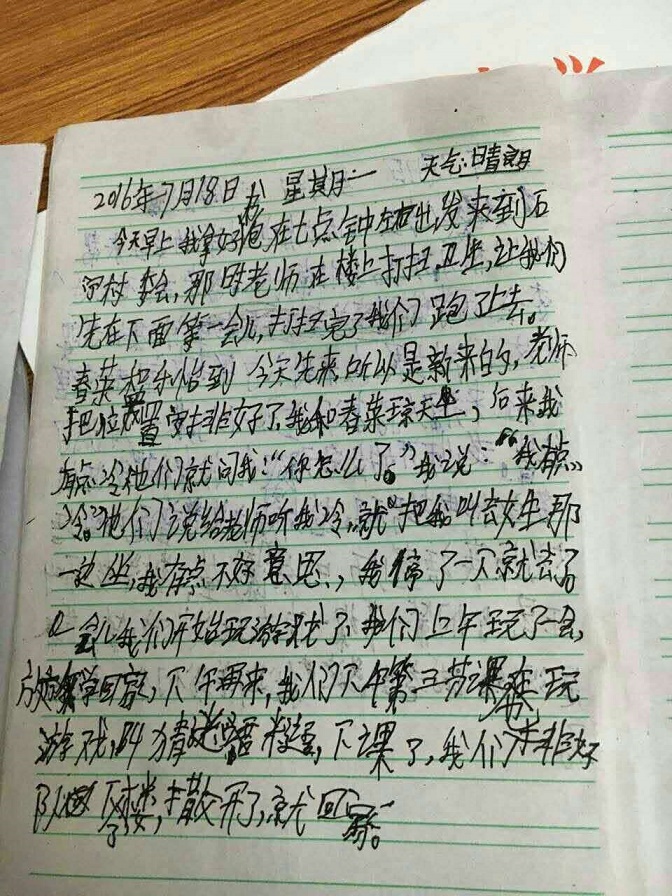 2016年7月18日 星期一 天气:晴朗
今天早上我拿好包在七点钟左右出发来到石
河村委会,那时老师在楼上打扫卫生,让我们
先在下面等一会儿,打扫完了我们跑了上去。
春菜和 怡到今天先来所以是新来的,老师
把位置安排好了,我和春菜琼天坐,后来我
有点冷他们就问我:“你怎么了。”我说:“我有点
冷。”他们说给老师听我冷,就把我叫去女生那
一边坐,我有点不好意思,我停了一下就去了。
一会儿我们开始玩游戏了,我们上午玩了一会,
放学回家,下午再来,我们下午第三节课在玩
游戏,叫猜谜语 ,下课了,我们排好
队 下楼,散开了,就回家。